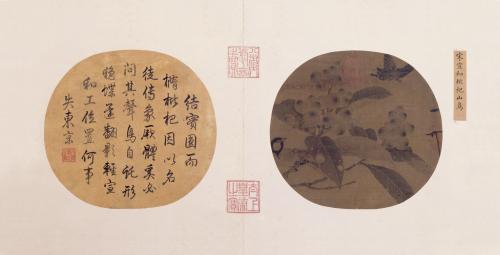 宋宣和枇杷山鳥
結實圓而
橢枇杷因以名
徒傳象厥體奚必
問其聲鳥自託形
穩蝶還翻影輕宣
和工位置何事
失東京